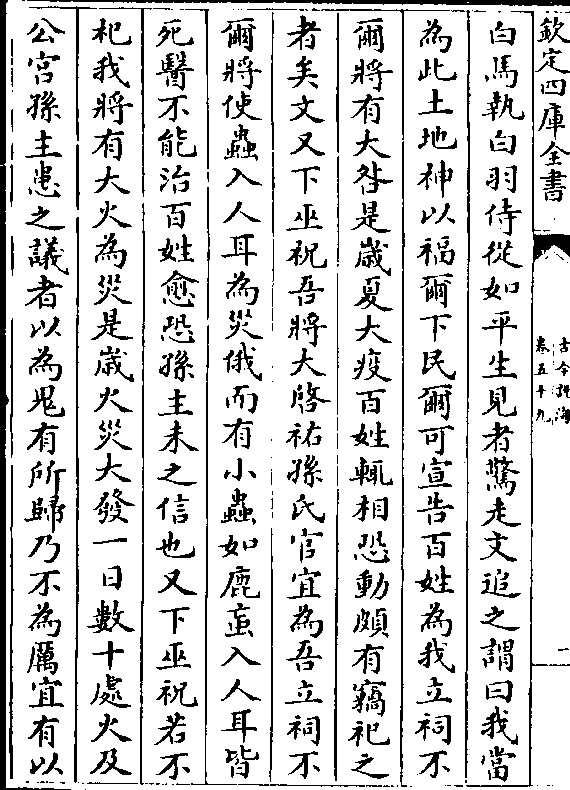 欽定四庫全書
古今說海
卷五十九
一
白馬執白羽侍從如平生見者驚走文追之謂曰我當
為此土地神以福爾下民爾可宣告百姓為我立祠不
爾將有大咎是歲夏大疫百姓輒相恐動頗有竊祀之
者矣文又下巫祝吾將大啓祐孫氏官宜為吾立祠不
爾將使蟲入人耳為災俄而有小蟲如鹿䖟入人耳皆
死醫不能治百姓愈恐孫主未之信也又下巫祝若不
杞我將有大火為災是歲火災大發一日數十處火及
公宮孫主患之議者以為鬼有所歸乃不為厲宜有以